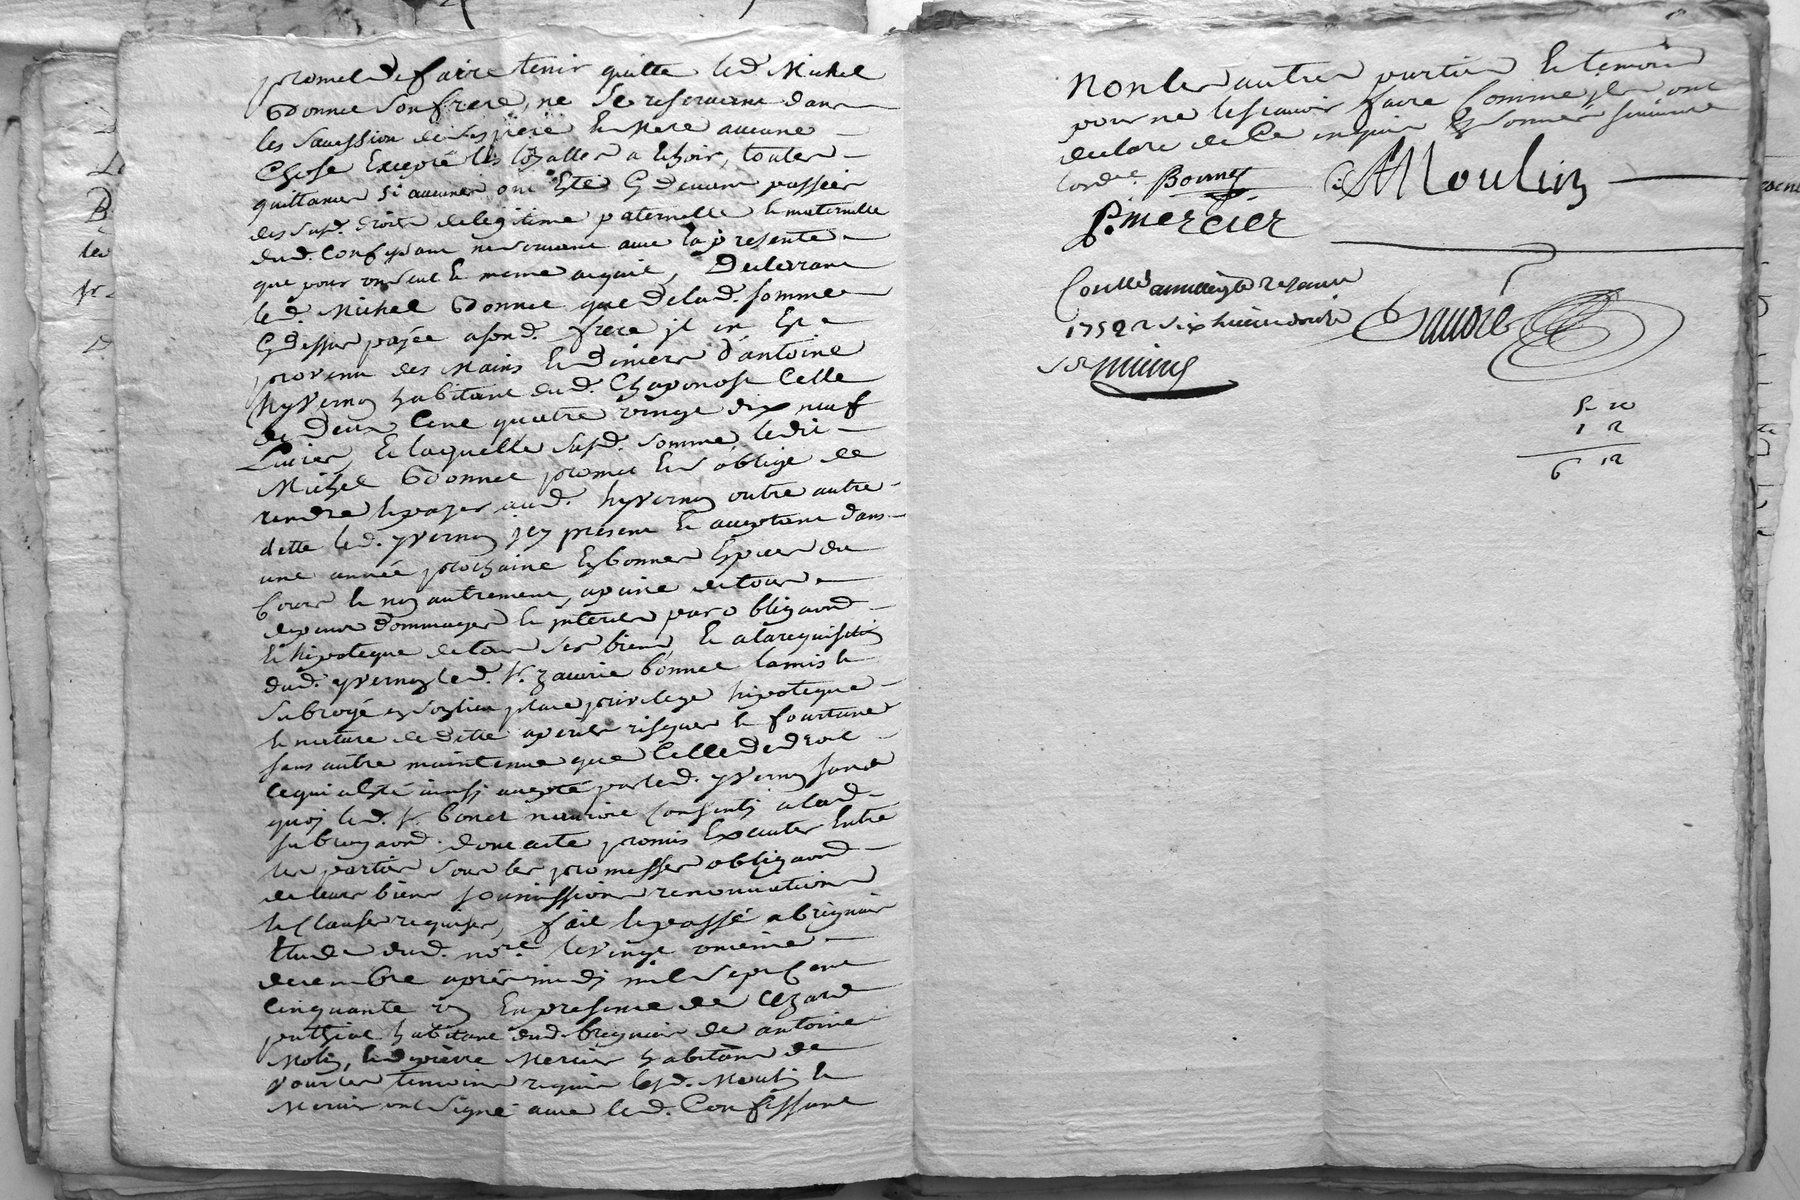 promet de faire tenir quitte led. Michel
Bonnet son frere, ne se reservant dans
les sucession desd. pere et mere aucune
Chose Excepté les loyalles a Echoir, toutes
quittances si aucunes ont Eté Cy devant passées
des susd. droits de legitime paternelle et maternelle
aud. Confessant ne servant avec la presente
que pour un seul et meme acquit, Declarant
led. Michel Bonnet que de lad. somme
Cy dessus payée a sond. frere jl en Est
provenu des mains et deniers d'antoine
hyvernoy habitant dud. Chaponost Celle
de Deux Cent quatre vingt dix neuf
Livres, Et laquelle susd. somme, ledit
Michel Bonnet promet Et s'oblige de
rendre et payer aud. hyvernoy outre autre
dette led. yvernoy jcy present Et acceptant dans
une année prochaine En bonnes Espèces du
Cours et non autrement, a peine de tous
depens dommages et jnterets par obligaond
Et hipoteque de tous ses biens, Et a la requisition
dud. yvernoy led. sr. Bonnet la mis et
subrogé en son lieu place privilege hipoteque
et nature de dette a perils risques et fourtune
sans autre maintenue que Celle de droit
Ce qui a Eté ainsy accepté par led. yvernoy sans
quoy led. sr. bonet n'auroit Consenty a lad.
subrogaond. dont acte promis Executer Entre
les parties sous les promesses obligaond
de leurs biens soumissions renonciations
et Clauses requises, fait et passé a brignais
Etude dud. nore. le vingt unieme
decembre après midy mil sept Cent
Cinquante un En presence de Cezard
habitant dud. brignais de antoine
Molin, et de pierre Mercier habitans de
vourles temoins requis lesd. Moulin et
Mercier ont signé avec led. Confessant
Non les autres parties Et temoin
pour ne le scavoir faire Comme jls ont
declaré de Ce enquis Et sommés suivant
lordce. Bonnet A Moulin
P. mercier
Conllé a
1752 R six livres douze
Sauvié
5 10
1 2
6 12